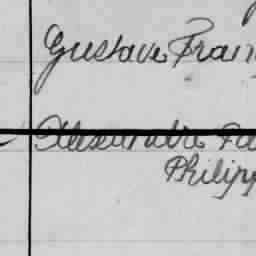 Gustave Fran
Alexandre Pa
Philipp